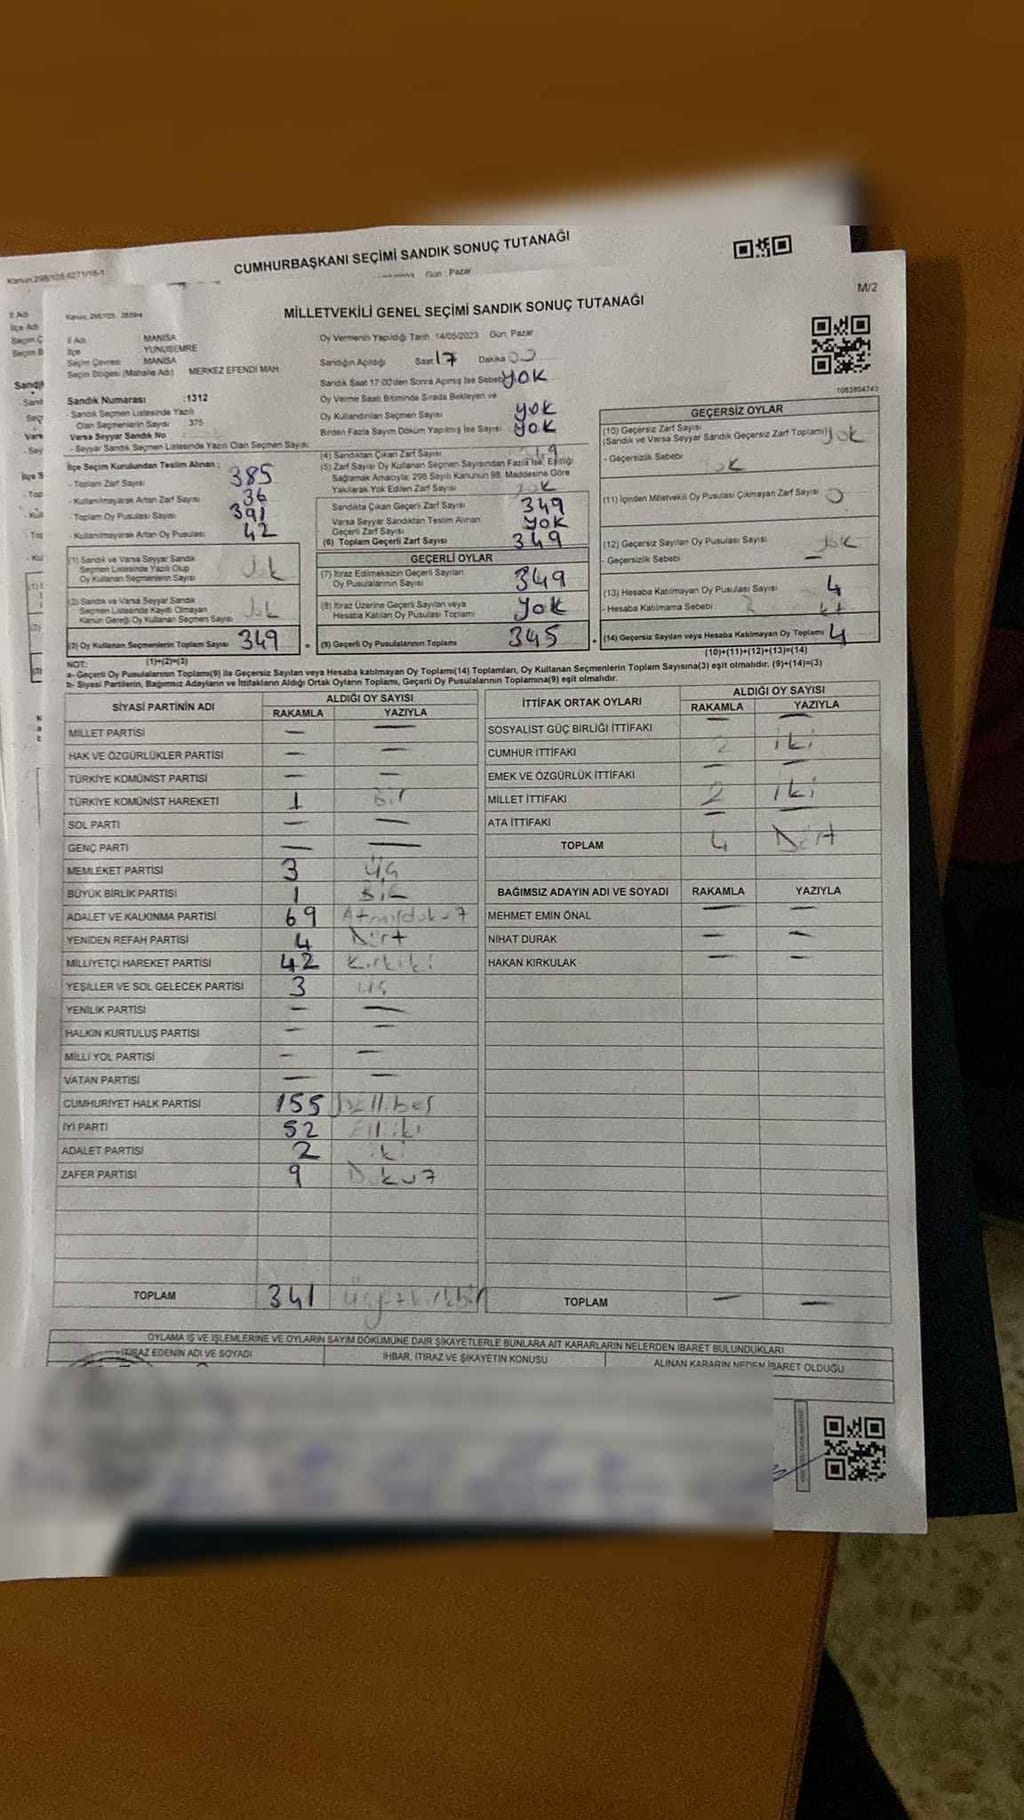 CUMHURBAŞKANI SEÇİMİ SANDIK SONUÇ TUTANAĞI
Gün: Pazar
M/2
MİLLETVEKİLİ GENEL SEÇİMİ SANDIK SONUÇ TUTANAĞI
İl Adı MANİSA
İlçe YUNUSEMRE
Seçim Çevresi MANİSA
Seçim Bölgesi (Mahalle Adı) MERKEZ EFENDİ MAH.
Sandık Numarası :1312
- Sandık Seçmen Listesinde Yazılı
Olan Seçmenlerin Sayısı 375
Varsa Seyyar Sandık No
- Seyyar Sandık Seçmen Listesinde Yazılı Olan Seçmen Sayısı:
İlçe Seçim Kurulundan Teslim Alınan ;
- Toplam Zarf Sayısı 385
- Kullanılmayarak Artan Zarf Sayısı 36
- Toplam Oy Pusulası Sayısı 391
- Kullanılmayarak Artan Oy Pusulası 42
(1) Sandık ve Varsa Seyyar Sandık
Seçmen Listesinde Yazılı Olup
Oy Kullanan Seçmenlerin Sayısı Yok
(2) Sandık ve Varsa Seyyar Sandık
Seçmen Listesinde Kayıtlı Olmayan
Kanun Gereği Oy Kullanan Seçmenlerin Sayısı Yok
(3) Oy Kullanan Seçmenlerin Toplam Sayısı 349
(1)+(2)=(3)
Oy Vermenin Yapıldığı Tarih 14/05/2023 Gün: Pazar
Sandığın Açıldığı Saat 17 Dakika 00
Sandık Saat 17:00'den Sonra Açımış İse Sebebi YOK
Oy Verme Saati Bitiminde Sırada Bekleyen ve
Oy Kullandırılan Seçmen Sayısı YOK
Birden Fazla Sayım Döküm Yapılmış İse Sayısı YOK
(4) Sandıktan Çıkan Zarf Sayısı
(5) Zarf Sayısı Oy Kullanan Seçmen Sayısından Fazla İse, Eşitliği
Sağlamak Amacıyla; 298 Sayılı Kanunun 98. Maddesine Göre
Yakılarak Yok Edilen Zarf Sayısı YOK
Sandıkta Çıkan Geçerli Zarf Sayısı 349
Varsa Seyyar Sandıktan Teslim Alınan
Geçerli Zarf Sayısı YOK
(6) Toplam Geçerli Zarf Sayısı 349
GEÇERLİ OYLAR
(7) İtiraz Edilmeksizin Geçerli Sayılan
Oy Pusulalarının Sayısı 349
(8) İtiraz Üzerine Geçerli Sayılan veya
Hesaba Katılan Oy Pusulası Toplamı Yok
(9) Geçerli Oy Pusulalarının Toplamı 345
1083804743
GEÇERSİZ OYLAR
(10) Geçersiz Zarf Sayısı
(Sandık ve Varsa Seyyar Sandık Geçersiz Zarf Toplamı) yok
- Geçersizlik Sebebi
(11) İçinden Milletvekili Oy Pusulası Çıkmayan Zarf Sayısı 0
(12) Geçersiz Sayılan Oy Pusulası Sayısı yok
- Geçersizlik Sebebi —
(13) Hesaba Katılmayan Oy Pusulası Sayısı 4
- Hesaba Katılmama Sebebi
(14) Geçersiz Sayılan veya Hesaba Katılmayan Oy Toplamı 4
(10)+(11)+(12)+(13)=(14)
NOT:
a- Geçerli Oy Pusulalarının Toplamı(9) ile Geçersiz Sayılan veya Hesaba katılmayan Oy Toplamı(14) Toplamları, Oy Kullanan Seçmenlerin Toplam Sayısına(3) eşit olmalıdır. (9)+(14)=(3)
b- Siyasi Partilerin, Bağımsız Adayların ve İttifakların Aldığı Ortak Oyların Toplamı, Geçerli Oy Pusulalarının Toplamına(9) eşit olmalıdır.
SİYASİ PARTİNİN ADI ALDIĞI OY SAYISI
RAKAMLA YAZIYLA
MİLLET PARTİSİ — —
HAK VE ÖZGÜRLÜKLER PARTİSİ — —
TÜRKİYE KOMÜNİST PARTİSİ — —
TÜRKİYE KOMÜNİST HAREKETİ 1 Bir
SOL PARTİ — —
GENÇ PARTİ — —
MEMLEKET PARTİSİ 3 üç
BÜYÜK BİRLİK PARTİSİ 1 Bir
ADALET VE KALKINMA PARTİSİ 69 Atmışdokuz
YENİDEN REFAH PARTİSİ 4 Dört
MİLLİYETÇİ HAREKET PARTİSİ 42 Kırkiki
YEŞİLLER VE SOL GELECEK PARTİSİ 3 üç
YENİLİK PARTİSİ — —
HALKIN KURTULUŞ PARTİSİ — —
MİLLİ YOL PARTİSİ — —
VATAN PARTİSİ — —
CUMHURİYET HALK PARTİSİ 155 Yüzellibeş
İYİ PARTİ 52 Elliiki
ADALET PARTİSİ 2 iki
ZAFER PARTİSİ 9 Dokuz
TOPLAM 341 Üçyüzkırkbir
İTTİFAK ORTAK OYLARI ALDIĞI OY SAYISI
RAKAMLA YAZIYLA
SOSYALİST GÜÇ BİRLİĞİ İTTİFAKI — —
CUMHUR İTTİFAKI 2 iki
EMEK VE ÖZGÜRLÜK İTTİFAKI — —
MİLLET İTTİFAKI 2 iki
ATA İTTİFAKI — —
TOPLAM 4 Dört
BAĞIMSIZ ADAYIN ADI VE SOYADI RAKAMLA YAZIYLA
MEHMET EMİN ÖNAL — —
NİHAT DURAK — —
HAKAN KIRKULAK — —
TOPLAM — —
OYLAMA İŞ VE İŞLEMLERİNE VE OYLARIN SAYIM DÖKÜMÜNE DAİR ŞİKAYETLERLE BUNLARA AİT KARARLARIN NELERDEN İBARET BULUNDUKLARI
İTİRAZ EDENİN ADI VE SOYADI İHBAR, İTİRAZ VE ŞİKAYETİN KONUSU ALINAN KARARIN NEDEN İBARET OLDUĞU